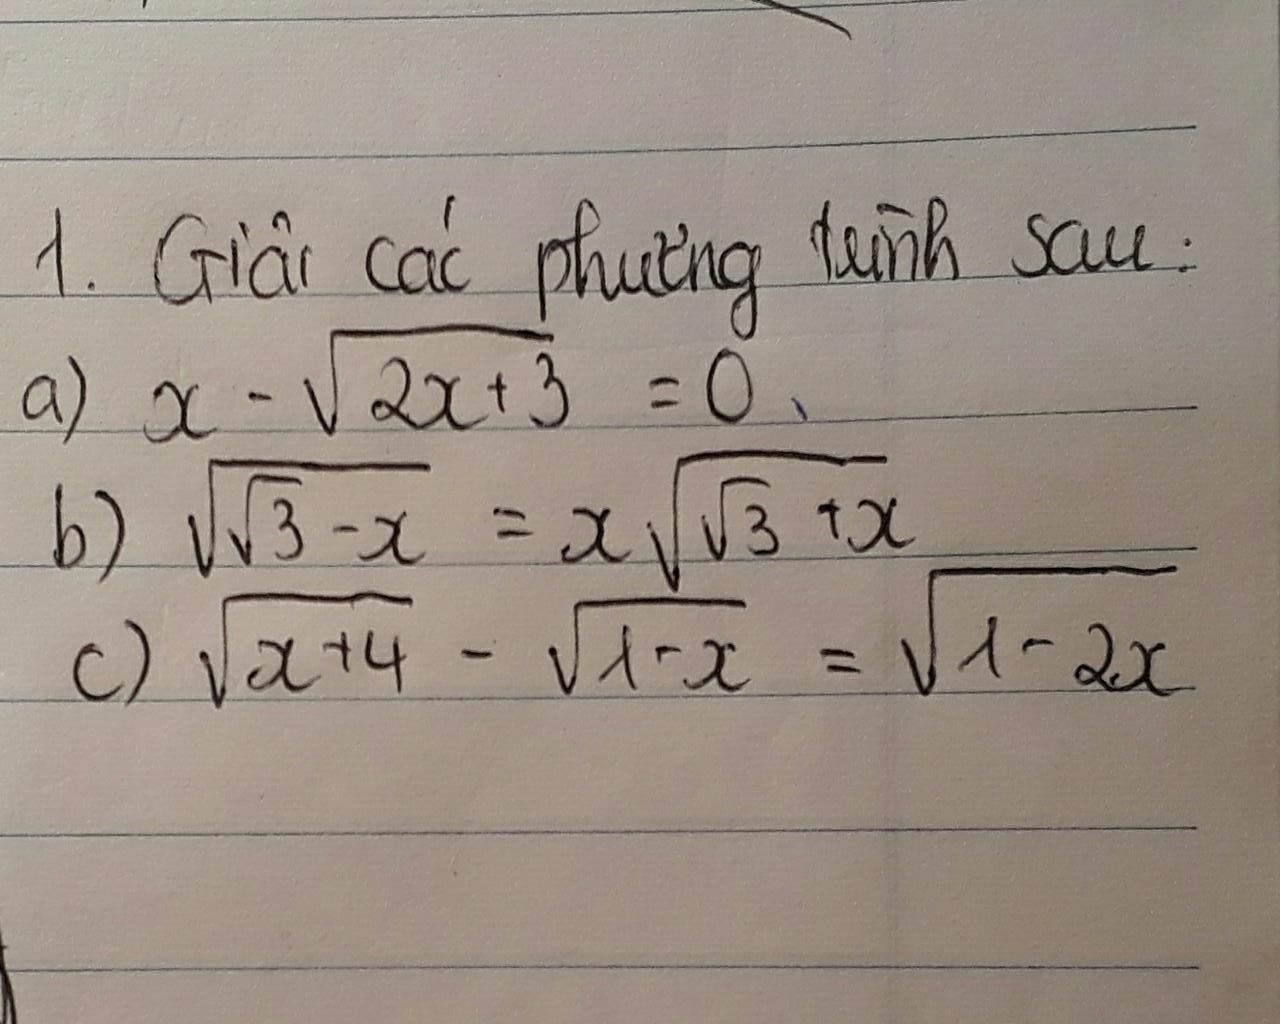 1. Giải các phương trình sau:
a) x - √(2x+3) = 0.
b) √(√3 - x) = x√(√3 + x)
c) √(x+4) - √(1-x) = √(1-2x)